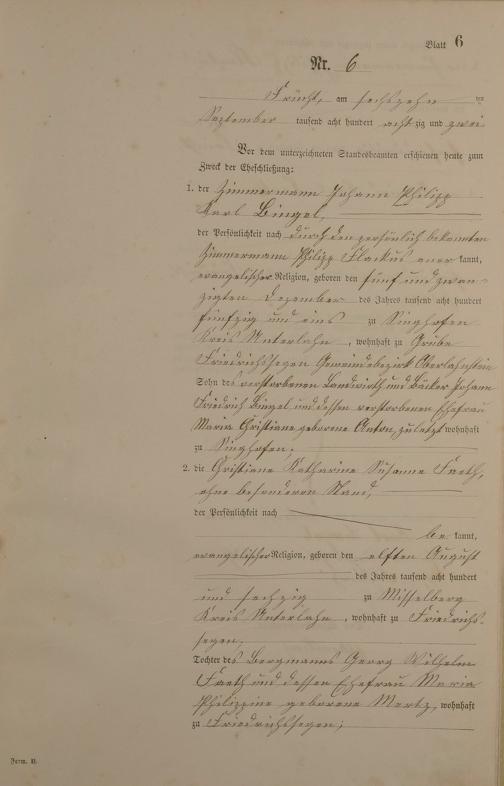 Blatt 6
Nr. 6
Frücht, am sechszehn ten
September tausend acht hundert acht zig und zwei
Vor dem unterzeichneten Standesbeamten erschienen heute zum
Zweck der Eheschließung:
1. der Zimmermann Johann Philipp
Karl Bingel,
der Persönlichkeit nach durch den persönlich bekannten
Zimmermann Philipp Flackus aner kannt,
evangelischer Religion, geboren den fünf und zwan-
zigten Dezember des Jahres tausend acht hundert
fünfzig und eins zu Singhofen
Kreis Unterlahn, wohnhaft zu Grube
Friedrichssegen Gemeindebezirk Oberlahnstein
Sohn des verstorbenen Landwirth und Bäcker Johann
Friedrich Bingel und dessen verstorbenen Ehefrau
Maria Christiane geborene Anton, zuletzt wohnhaft
zu Singhofen;
2. die Christiane Katharine Susanne Faeth,
ohne besonderen Stand,
der Persönlichkeit nach
be kannt,
evangelischer Religion, geboren den elften August
des Jahres tausend acht hundert
und sechzig zu Misselberg
Kreis Unterlahn, wohnhaft zu Friedrichs-
segen;
Tochter des Bergmanns Georg Wilhelm
Faeth und dessen Ehefrau Maria
Philippine geborene Mertz, wohnhaft
zu Friedrichssegen;
Form. B.